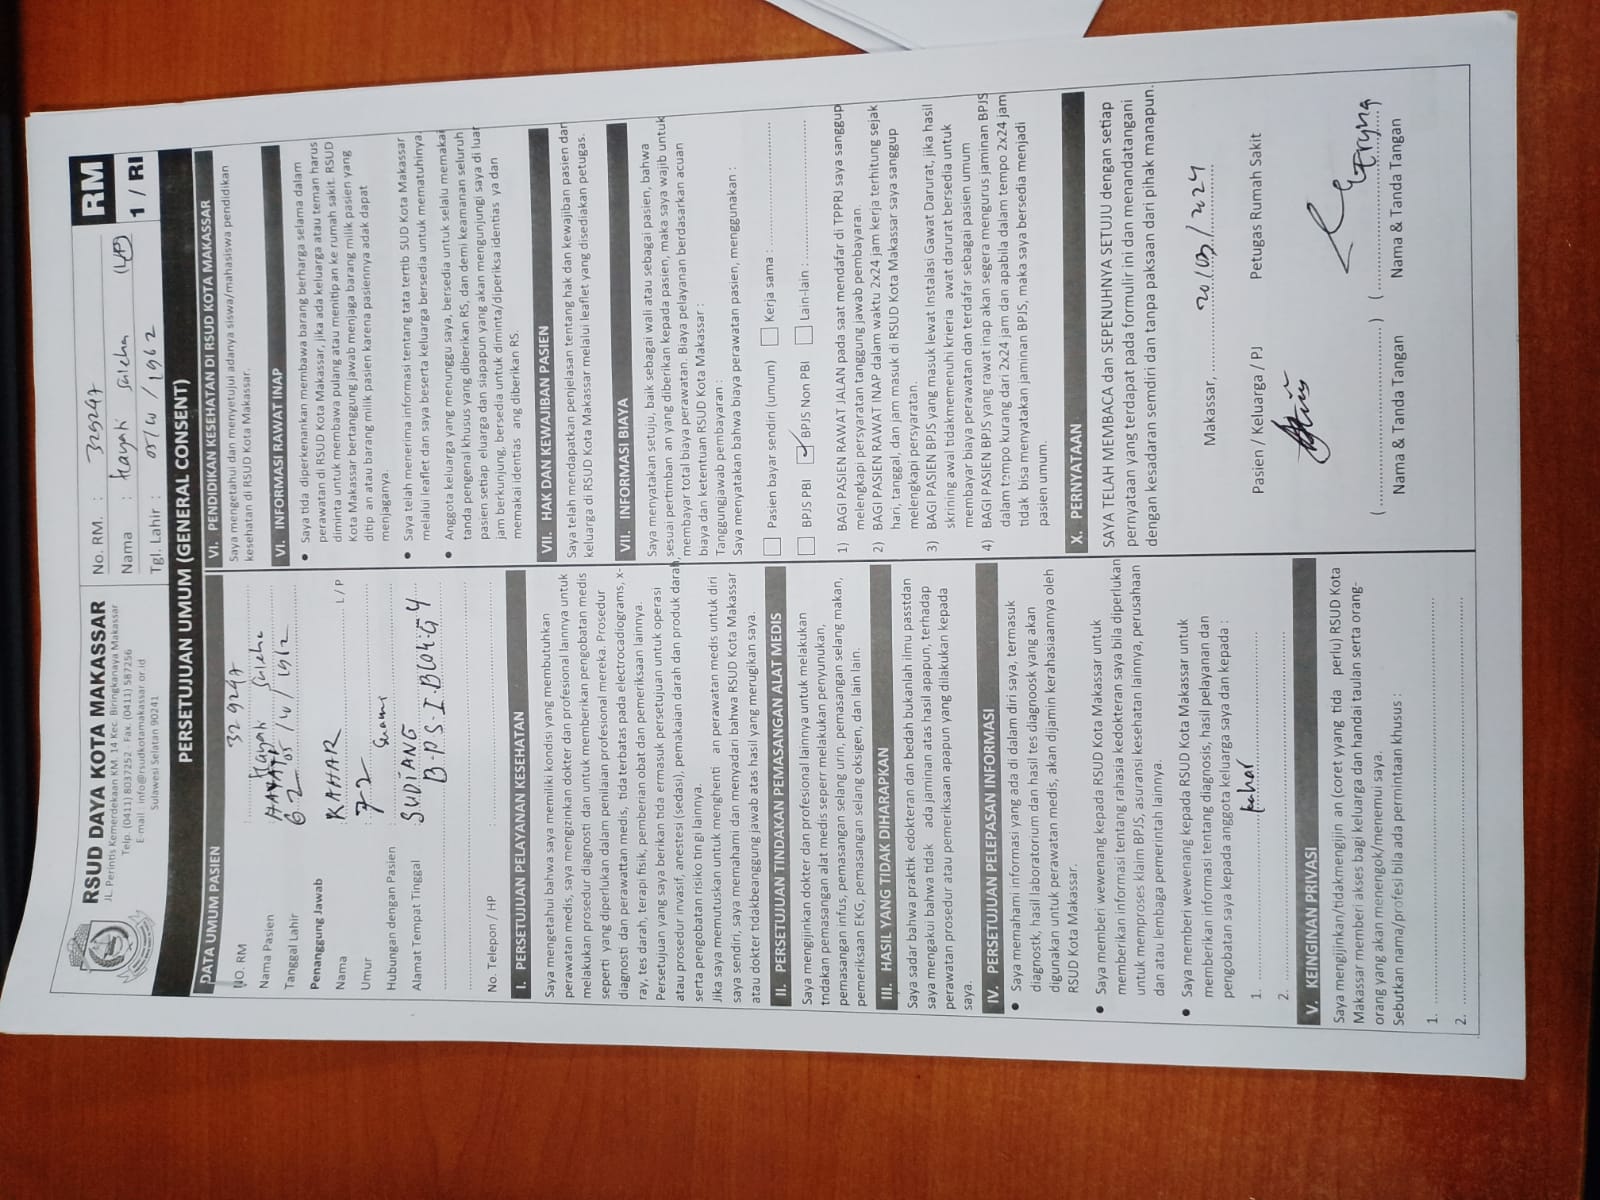 RSUD DAYA KOTA MAKASSAR
JL. Perintis Kemerdekaan KM. 14 Kec. Biringkanaya Makassar
Telp. (0411) 8037252 - Fax. (0411) 587256
E-mail : info@rsudkotamakassar.or.id
Sulawesi Selatan 90241
No. RM. : 329247
Nama : Hayati Saleha (L/P)
Tgl. Lahir : 05/10/1962
RM
1 / RI
PERSETUJUAN UMUM (GENERAL CONSENT)
DATA UMUM PASIEN
NO. RM : 329247
Nama Pasien : HAYATI Hayati Saleha
Tanggal Lahir : 62 05/10/1962
Penanggung Jawab
Nama : KAHAR L / P
Umur : 72
Hubungan dengan Pasien : Suami
Alamat Tempat Tinggal : SUDIANG
B.P.S.I.BLOK.G4
No. Telepon / HP :
I. PERSETUJUAN PELAYANAN KESEHATAN
Saya mengetahui bahwa saya memiliki kondisi yang membutuhkan
perawatan medis, saya mengizinkan dokter dan profesional lainnya untuk
melakukan prosedur diagnosti dan untuk memberikan pengobatan medis
seperti yang diperlukan dalam penilaian profesional mereka. Prosedur
diagnosti dan perawattan medis, tida terbatas pada electrocadiograms, x-
ray, tes darah, terapi fisik, pemberian obat dan pemeriksaan lainnya.
Persetujuan yang saya berikan tida ermasuk persetujuan untuk operasi
atau prosedur invasif, anestesi (sedasi), pemakaian darah dan produk darah,
serta pengobatan risiko tin gi lainnya.
Jika saya memutuskan untuk menghenti an perawatan medis untuk diri
saya sendiri, saya memahami dan menyadari bahwa RSUD Kota Makassar
atau dokter tidakbeanggung jawab atas hasil yang merugikan saya.
II. PERSETUJUAN TINDAKAN PEMASANGAN ALAT MEDIS
Saya mengijinkan dokter dan profesional lainnya untuk melakukan
tndakan pemasangan alat medis seperr melakukan penyunukan,
pemasangan infus, pemasangan selang urin, pemasangan selang makan,
pemeriksaan EKG, pemasangan selang oksigen, dan lain lain.
III. HASIL YANG TIDAK DIHARAPKAN
Saya sadar bahwa praktik edokteran dan bedah bukanlah ilmu passtdan
saya mengakui bahwa tidak ada jaminan atas hasil apapun, terhadap
perawatan prosedur atau pemeriksaan apapun yang dilakukan kepada
saya.
IV. PERSETUJUAN PELEPASAN INFORMASI
• Saya memahami informasi yang ada di dalam diri saya, termasuk
diagnostk, hasil laboratorium dan hasil tes diagnoosk yang akan
digunakan untuk perawatan medis, akan dijamin kerahasiaannya oleh
RSUD Kota Makassar.
• Saya memberi wewenang kepada RSUD Kota Makassar untuk
memberikan informasi tentang rahasia kedokteran saya bila diperlukan
untuk memproses klaim BPJS, asuransi kesehatan lainnya, perusahaan
dan atau lembaga pemerintah lainnya.
• Saya memberi wewenang kepada RSUD Kota Makassar untuk
memberikan informasi tentang diagnosis, hasil pelayanan dan
pengobatan saya kepada anggota keluarga saya dan kepada :
1. kahar
2.
V. KEINGINAN PRIVASI
Saya mengijinkan/tidakmengijin an (coret yyang tida perlu) RSUD Kota
Makassar memberi akses bagi keluarga dan handai taulan serta orang-
orang yang akan menengok/menemui saya.
Sebutkan nama/profesi bila ada permintaan khusus :
1.
2.
VI. PENDIDIKAN KESEHATAN DI RSUD KOTA MAKASSAR
Saya mengetahui dan menyetujui adanya siswa/mahasiswa pendidikan
kesehatan di RSUD Kota Makassar.
VI. INFORMASI RAWAT INAP
• Saya tida diperkenankan membawa barang berharga selama dalam
perawatan di RSUD Kota Makassar, jika ada keluarga atau teman harus
diminta untuk membawa pulang atau menitip an ke rumah sakit. RSUD
Kota Makassar bertanggung jawab menjaga barang milik pasien yang
ditip an atau barang milik pasien karena pasiennya adak dapat
menjaganya.
• Saya telah menerima informasi tentang tata tertib SUD Kota Makassar
melalui leaflet dan saya beserta keluarga bersedia untuk mematuhinya.
• Anggota keluarga yang menunggu saya, bersedia untuk selalu memakai
tanda pengenal khusus yang diberikan RS, dan demi keamanan seluruh
pasien setiap eluarga dan siapapun yang akan mengunjungi saya di luar
jam berkunjung, bersedia untuk diminta/diperiksa identias ya dan
memakai identias ang diberikan RS.
VII. HAK DAN KEWAJIBAN PASIEN
Saya telah mendapatkan penjelasan tentang hak dan kewajiban pasien dar
keluarga di RSUD Kota Makassar melalui leaflet yang disediakan petugas.
VII. INFORMASI BIAYA
Saya menyatakan setuju, baik sebagai wali atau sebagai pasien, bahwa
sesuai pertimban an yang diberikan kepada pasien, maka saya wajib untuk
membayar total biaya perawatan. Biaya pelayanan berdasarkan acuan
biaya dan ketentuan RSUD Kota Makassar :
Tanggungjawab pembayaran :
Saya menyatakan bahwa biaya perawatan pasien, menggunakan :
Pasien bayar sendiri (umum) Kerja sama :
BPJS PBI ✓ BPJS Non PBI Lain-lain :
1) BAGI PASIEN RAWAT JALAN pada saat mendafar di TPPRJ saya sanggup
melengkapi persyaratan tanggung jawab pembayaran.
2) BAGI PASIEN RAWAT INAP dalam waktu 2x24 jam kerja terhitung sejak
hari, tanggal, dan jam masuk di RSUD Kota Makassar saya sanggup
melengkapi persyaratan.
3) BAGI PASIEN BPJS yang masuk lewat Instalasi Gawat Darurat, jika hasil
skrining awal tidakmemenuhi krieria awat darurat bersedia untuk
membayar biaya perawatan dan terdafar sebagai pasien umum
4) BAGI PASIEN BPJS yang rawat inap akan segera mengurus jaminan BPJS
dalam tempo kurang dari 2x24 jam dan apabila dalam tempo 2x24 jam
tidak bisa menyatakan jaminan BPJS, maka saya bersedia menjadi
pasien umum.
X. PERNYATAAN
SAYA TELAH MEMBACA dan SEPENUHNYA SETUJU dengan setiap
pernyataan yang terdapat pada formulir ini dan menandatangani
dengan kesadaran semdiri dan tanpa paksaan dari pihak manapun.
Makassar, 20/03/2024
Pasien / Keluarga / PJ Petugas Rumah Sakit
Eryna
(..........) (..........
Nama & Tanda Tangan Nama & Tanda Tangan